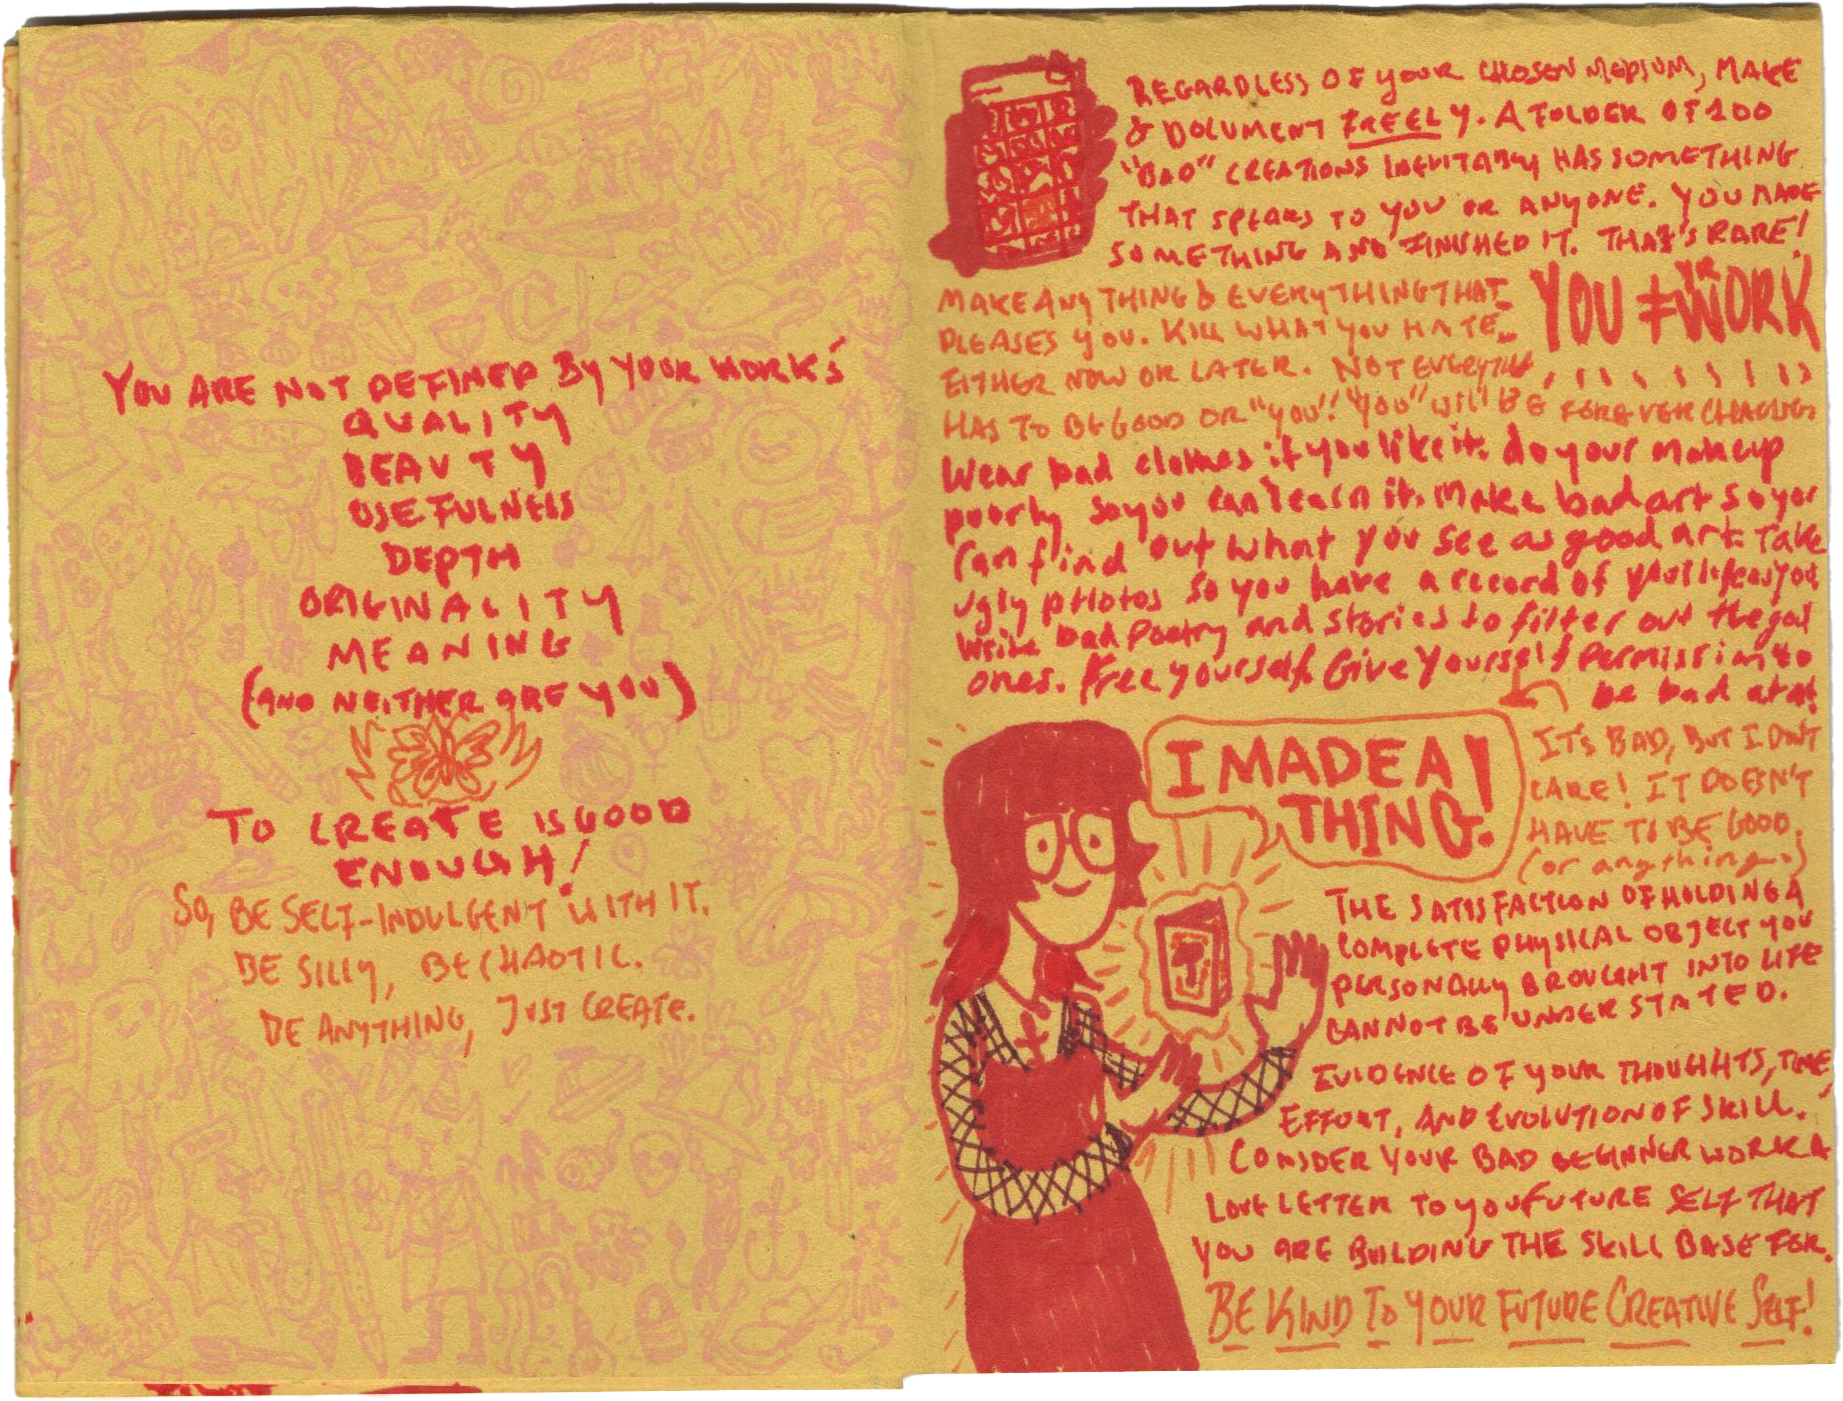 YOU ARE NOT DEFINED BY YOUR WORK'S
QUALITY
BEAUTY
USEFULNESS
DEPTH
ORIGINALITY
MEANING
(AND NEITHER ARE YOU)
TO CREATE IS GOOD
ENOUGH!
SO, BE SELF-INDULGENT WITH IT.
BE SILLY, BE CHAOTIC.
BE ANYTHING, JUST CREATE.
REGARDLESS OF YOUR CHOSEN MEDIUM, MAKE
& DOCUMENT FREELY. A FOLDER OF 100
"BAD" CREATIONS INEVITABLY HAS SOMETHING
THAT SPEAKS TO YOU OR ANYONE. YOU MADE
SOMETHING AND FINISHED IT. THAT'S RARE!
MAKE ANYTHING & EVERYTHING THAT
PLEASES YOU. KILL WHAT YOU HATE
EITHER NOW OR LATER. NOT EVERYTHING
HAS TO BE GOOD OR "YOU"! "YOU" WILL BE FOREVER CHANGING
YOU ≠ YR WORK
Wear bad clothes if you like it. do your makeup
poorly so you can learn it. Make bad art so you
can find out what you see as good art. Take
ugly photos so you have a record of your life as you
write bad poetry and stories to filter out the good
ones. Free yourself. Give yourself permission to
be bad at it
I MADE A
THING!
IT'S BAD, BUT I DON'T
CARE! IT DOESN'T
HAVE TO BE GOOD.
(or anything.)
THE SATISFACTION OF HOLDING A
COMPLETE PHYSICAL OBJECT YOU
PERSONALLY BROUGHT INTO LIFE
CANNOT BE UNDERSTATED.
EVIDENCE OF YOUR THOUGHTS, TIME,
EFFORT, AND EVOLUTION OF SKILL.
CONSIDER YOUR BAD BEGINNER WORK A
LOVE LETTER TO YOU FUTURE SELF THAT
YOU ARE BUILDING THE SKILL BASE FOR.
BE KIND TO YOUR FUTURE CREATIVE SELF!